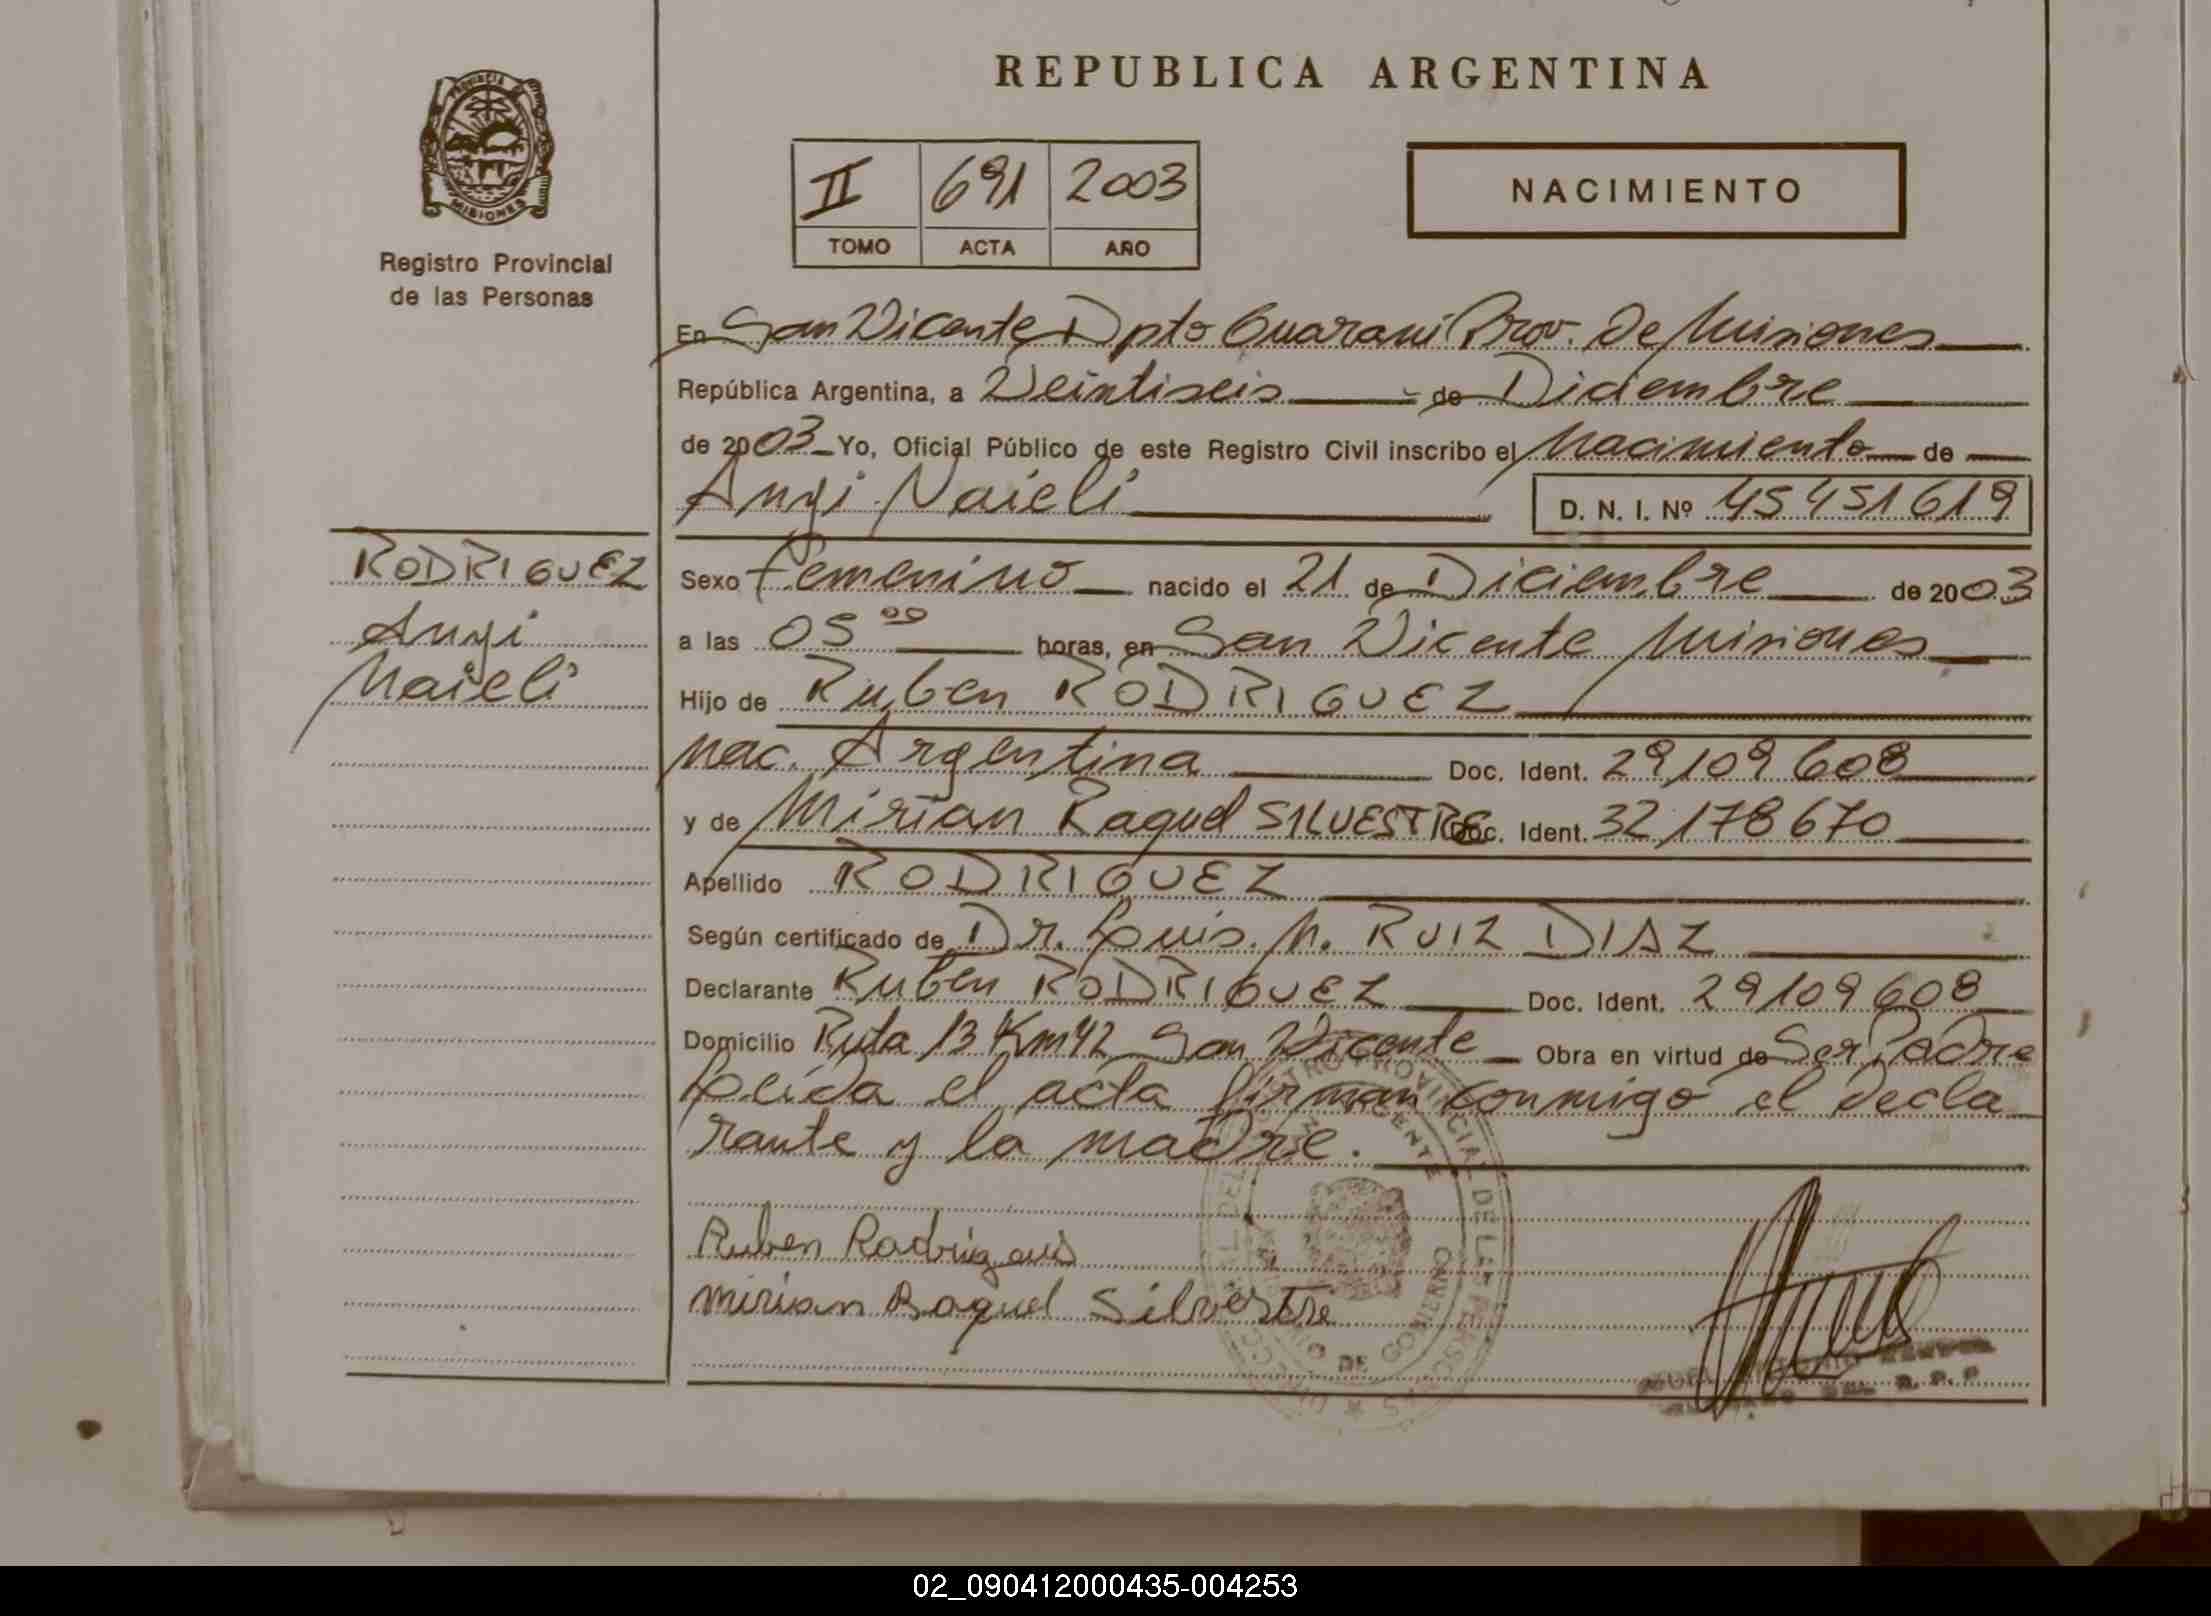 REPUBLICA ARGENTINA
PROVINCIA DE
MISIONES
Registro Provincial
de las Personas
II 691 2003
TOMO ACTA AÑO
NACIMIENTO
En San Vicente Dpto Guarani Prov. de Misiones
República Argentina, a Veintiseis de Diciembre
de 2003 Yo, Oficial Público de este Registro Civil inscribo el Nacimiento de
Anyi Naieli D. N. I. Nº 45451619
RODRIGUEZ
Anyi
Naieli
Sexo Femenino nacido el 21 de Diciembre de 2003
a las 05 00 horas, en San Vicente Misiones
Hijo de Ruben RODRIGUEZ
Nac. Argentina Doc. Ident. 29109608
y de Mirian Raquel SILVESTRE Doc. Ident. 32178670
Apellido RODRIGUEZ
Según certificado de Dr. Luis. M. RUIZ DIAZ
Declarante Ruben RODRIGUEZ Doc. Ident. 29109608
Domicilio Ruta 13 Km 42 San Vicente Obra en virtud de Ser Padre
Leida el acta firman conmigo el decla
rante y la madre.
Ruben Rodrigues
Mirian Raquel Silvestre
REGISTRO PROVINCIAL DE LAS PERSONAS
VICENTE
MINISTERIO DE GOBIERNO
02_090412000435-004253